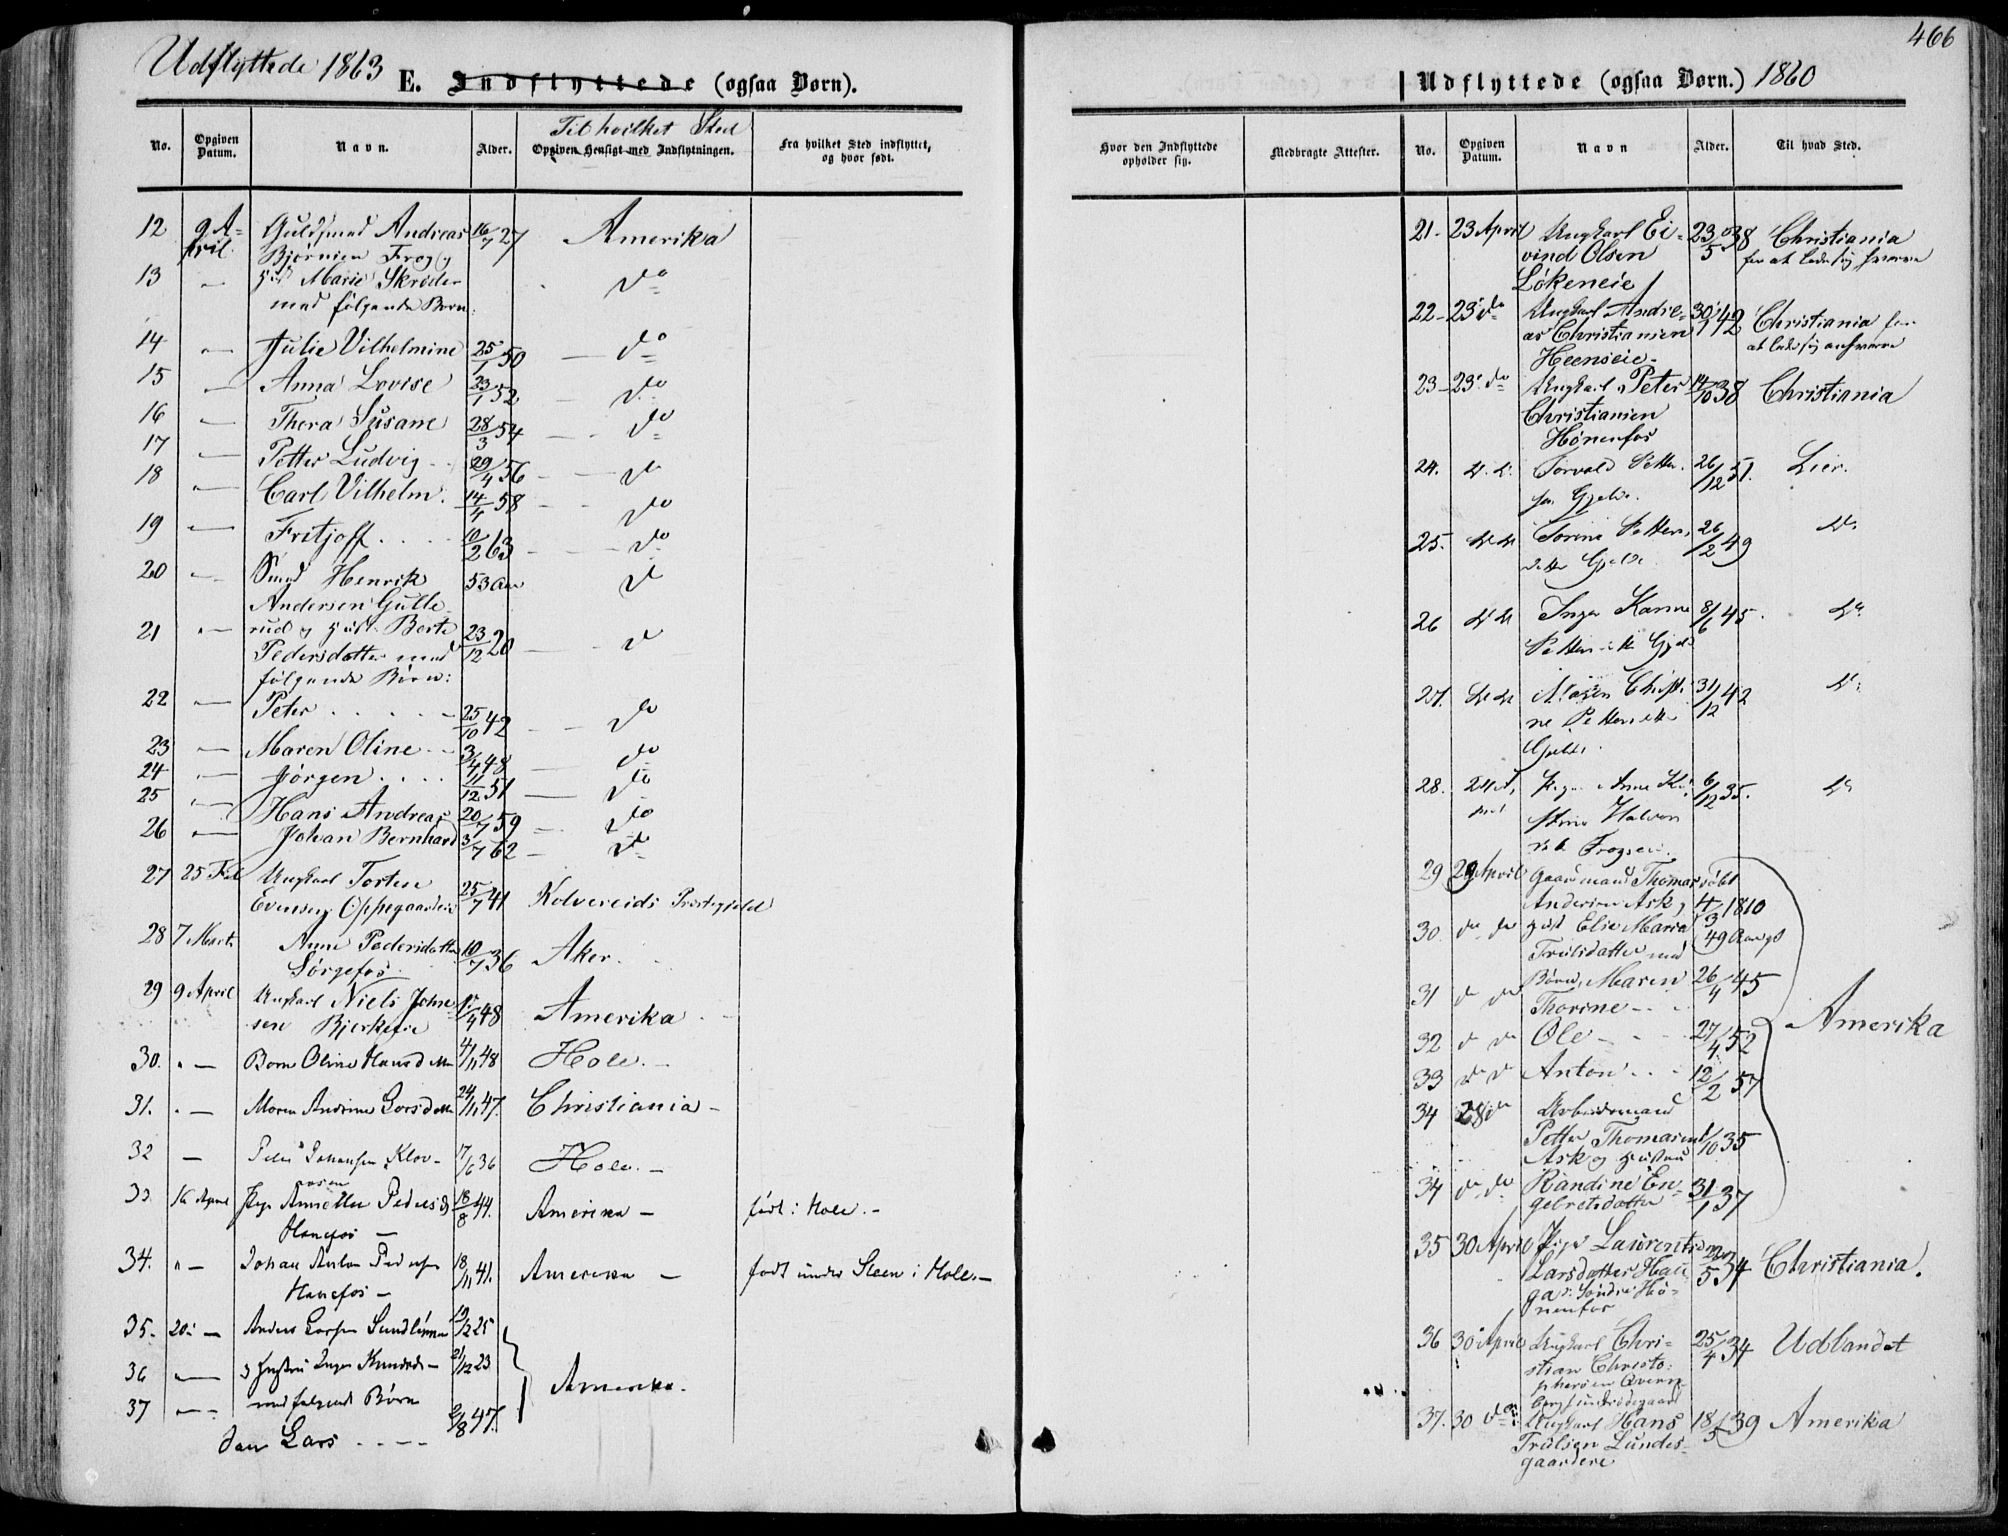 Udflyttede 1863
E. Indflyttede (ogsaa Børn).
Til hvilket Sted
No.
Opgiven Datum.
Navn.
Alder.
Opgiven Hensigt med Indflytningen.
Fra hvilket Sted indflyttet, og hvor født.
12 9 A- Guldsmed Andreas 16/7 27 Amerika
pril. Bjørnsen Frog og
13 " Hust Marie Skrøder do
med følgende Børn:
14 " Julie Vilhelmine 25/1 50 do
15 " Anna Lovise 23/1 52 do
16 " Thora Susane 28/3 54 do
17 " Petter Ludvig 29/4 56 do
18 " Carl Vilhelm. 14/4 58 do
19 " Fritjoff 10/2 63 do
20 " Smed Henrik 53 Aar do
Andersen Gulle-
21 " rud og Hust. Berte 23/12 20 do
Pedersdatter med
følgende Børn:
22 " Peter 25/10 42 do
23 " Maren Oline 3/4 48 do
24 " Jørgen 11/12 51 do
25 " Hans Andreas 20/7 59 do
26 " Johan Bernhard 3/7 62 do
27 25 Feb Ungkarl Torsten 25/7 41 Kolvereids Præstegjeld
Evensen Oppegaardeie
28 7 Marts Anne Pedersdatter 10/7 36 Aker.
Sørgefos
29 9 April Ungkarl Niels Johne- 15/4 48 Amerika
sen Bjerkeeie
30. " Oline Hansdatter 4/11 48 Hole.
31. " Maren Andrine Larsdatter 24/11 47. Christiania
32 Johansen Klov- 17/6 36 Hole.
33. 16 April Pige Pedersd 18/8 44. Amerika født i Hole.
Hønefos
34. " Johan Anton Pedersen 18/11 41. Amerika født under Steen i Hole.
Hønefos
35. 20de Anders Larsen 19/2 25
36 " og Hustru Inger Knudsd 21/12 23 Amerika.
37 " med følgende Børn
Lars 2/8 47.
466
Udflyttede (ogsaa Børn.) 1860
Hvor den Indflyttede opholder sig.
Medbragte Attester.
No.
Opgiven Datum.
Navn
Alder.
Til hvad Sted.
21 23 April Ungkarl Ei- 23/5 38 Christiania
vind Olsen
Løkeneie
22 23 do Ungkarl Andre- 30/1 42 Christiania for
as Christiansen
Heenseie
23 23 do Ungkarl Peter 14/10 38 Christiania
Christiansen
Hønenfos
24. d. d. Torvald Petter- 26/12 51. Lier.
sen Gjelde.
25. d. d. Petters- 26/2 49 do
datter Gjelde
26 d. d. Inger Karine 8/6 45. do
Pettersdatter Gjelde
27. d. d. Maren Christi- 31/12 42 do
ne Pettersdatter
Gjelde.
28. 24 A- Pige Anne Kri- 6/12 35. do
pril stine Halvors-
datter Frogseie.
29 29 April Gaardmand Thomas døbt
Andersen Ask, 4/3 1810
30. do do Hust Elise Marie 49 Aar gl
Trulsdatter med
31 do do Børn, Maren 26/4 45
Thorine
32 do do Ole 27/4 52
33 do do Anton 12/2 57
Amerika
34 28 do Arbeidsmand
Petter Thomasen 1/10 35
Ask og Hustru
34 do do Randine En- 31/1 37
gebretsdatter
35 30 April Pige Laurentse 22/5 34 Christiania.
Larsdatter Hau-
ga v. Søndre Hø-
nenfos
36 30 April Ungkarl Chri- 25/4 34 Udlandet
stian Christo-
phersen
37. 30 do Ungkarl Hans 18/5 39 Amerika
Trulsen Lundes-
gaardeie